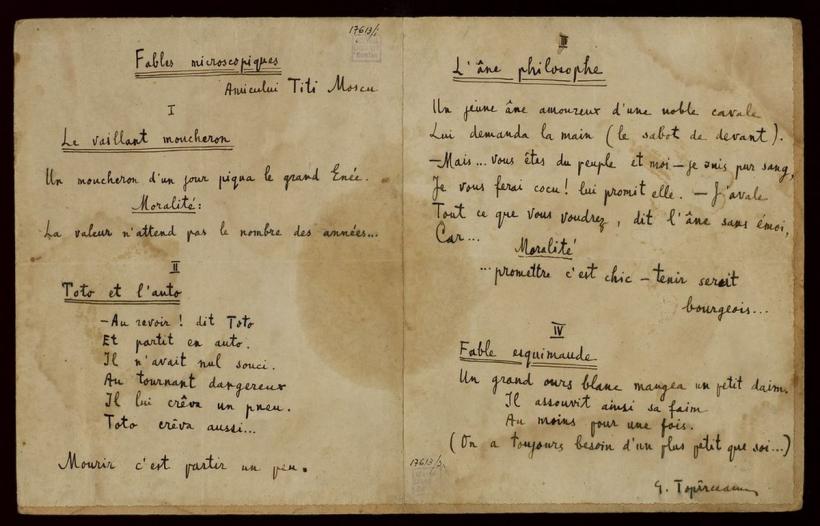 17613/1
Fables microscopiques
Amicului Titi Moscu
I
Le vaillant moucheron
Un moucheron d'un jour piqua le grand Enée.
Moralité:
La valeur n'attend pas le nombre des années...
II
Toto et l'auto
—Au revoir ! dit Toto
Et partit en auto.
Il n'avait nul souci.
Au tournant dangereux
Il lui crêva un pneu.
Toto crêva aussi...
Mourir c'est partir un peu.
III
L'âne philosophe
Un jeune âne amoureux d'une noble cavale
Lui demanda la main (le sabot de devant).
—Mais... vous êtes du peuple et moi — je suis pur sang,
Je vous ferai cocu! lui promit elle. — J'avale
Tout ce que vous voudrez, dit l'âne sans émoi,
Car...
Moralité
...promettre c'est chic — tenir serait
bourgeois...
IV
Fable esquimaude
Un grand ours blanc mangea un petit daim.
Il assouvit ainsi sa faim
Au moins pour une fois.
(On a toujours besoin d'un plus petit que soi...)
17613/2
G. Topîrceanu